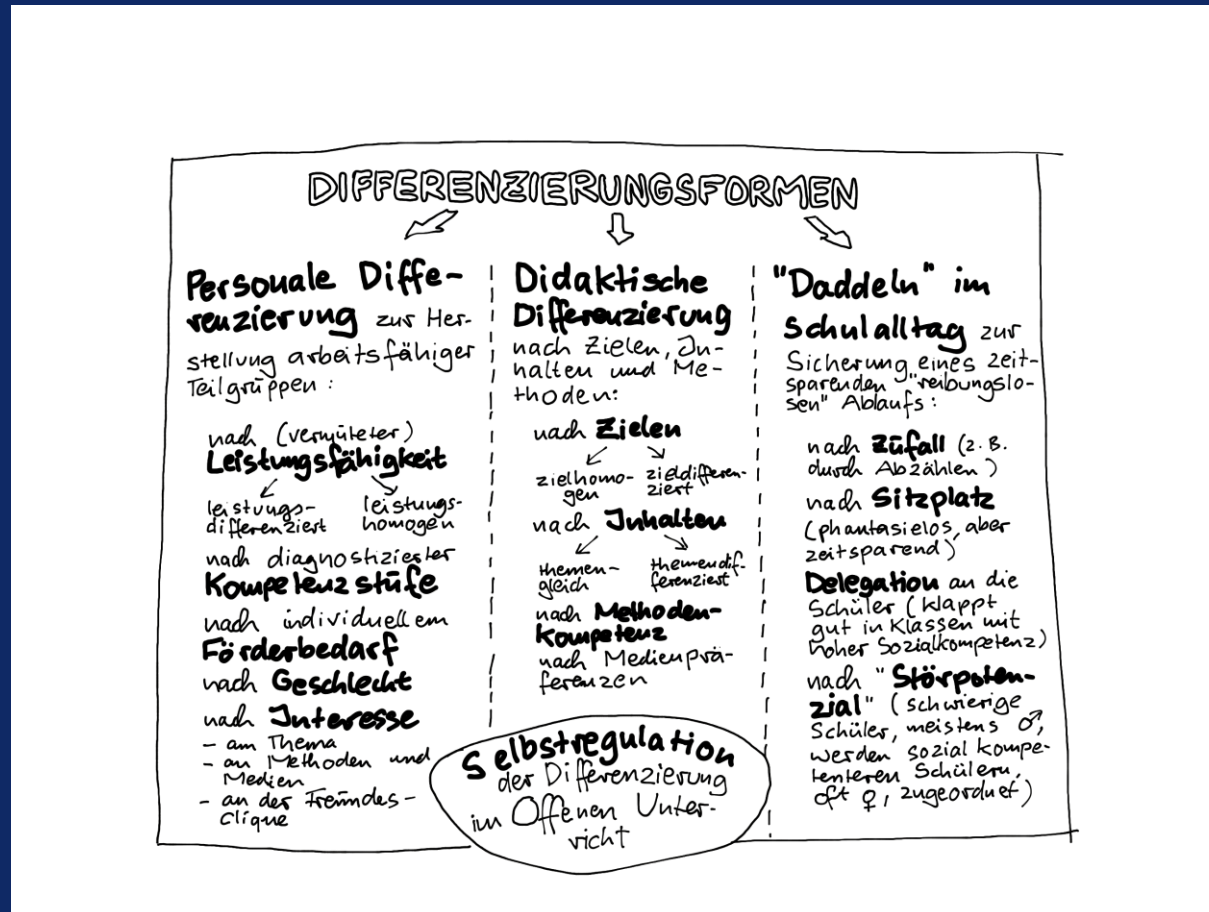 DIFFERENZIERUNGSFORMEN
Personale Diffe-
renzierung zur Her-
stellung arbeitsfähiger
Teilgruppen:
nach (vermuteter)
Leistungsfähigkeit
leistungs-
differenziert
leistungs-
homogen
nach diagnostizierter
Kompetenzstufe
nach individuellem
Förderbedarf
nach Geschlecht
nach Interesse
- am Thema
- an Methoden und
Medien
- an der Freundes-
clique
Didaktische
Differenzierung
nach Zielen, In-
halten und Me-
thoden:
nach Zielen
zielhomo-
gen
zieldifferen-
ziert
nach Inhalten
themen-
gleich
themendif-
ferenziert
nach Methoden-
kompetenz
nach Medienprä-
ferenzen
"Daddeln" im
Schulalltag zur
Sicherung eines zeit-
sparenden "reibungslo-
sen" Ablaufs:
nach Zufall (z. B.
durch Abzählen)
nach Sitzplatz
(phantasielos, aber
zeitsparend)
Delegation an die
Schüler (klappt
gut in Klassen mit
hoher Sozialkompetenz)
nach "Störpoten-
zial" (schwierige
Schüler, meistens ♂,
werden sozial kompe-
tenteren Schülern,
oft ♀, zugeordnet)
Selbstregulation
der Differenzierung
im Offenen Unter-
richt